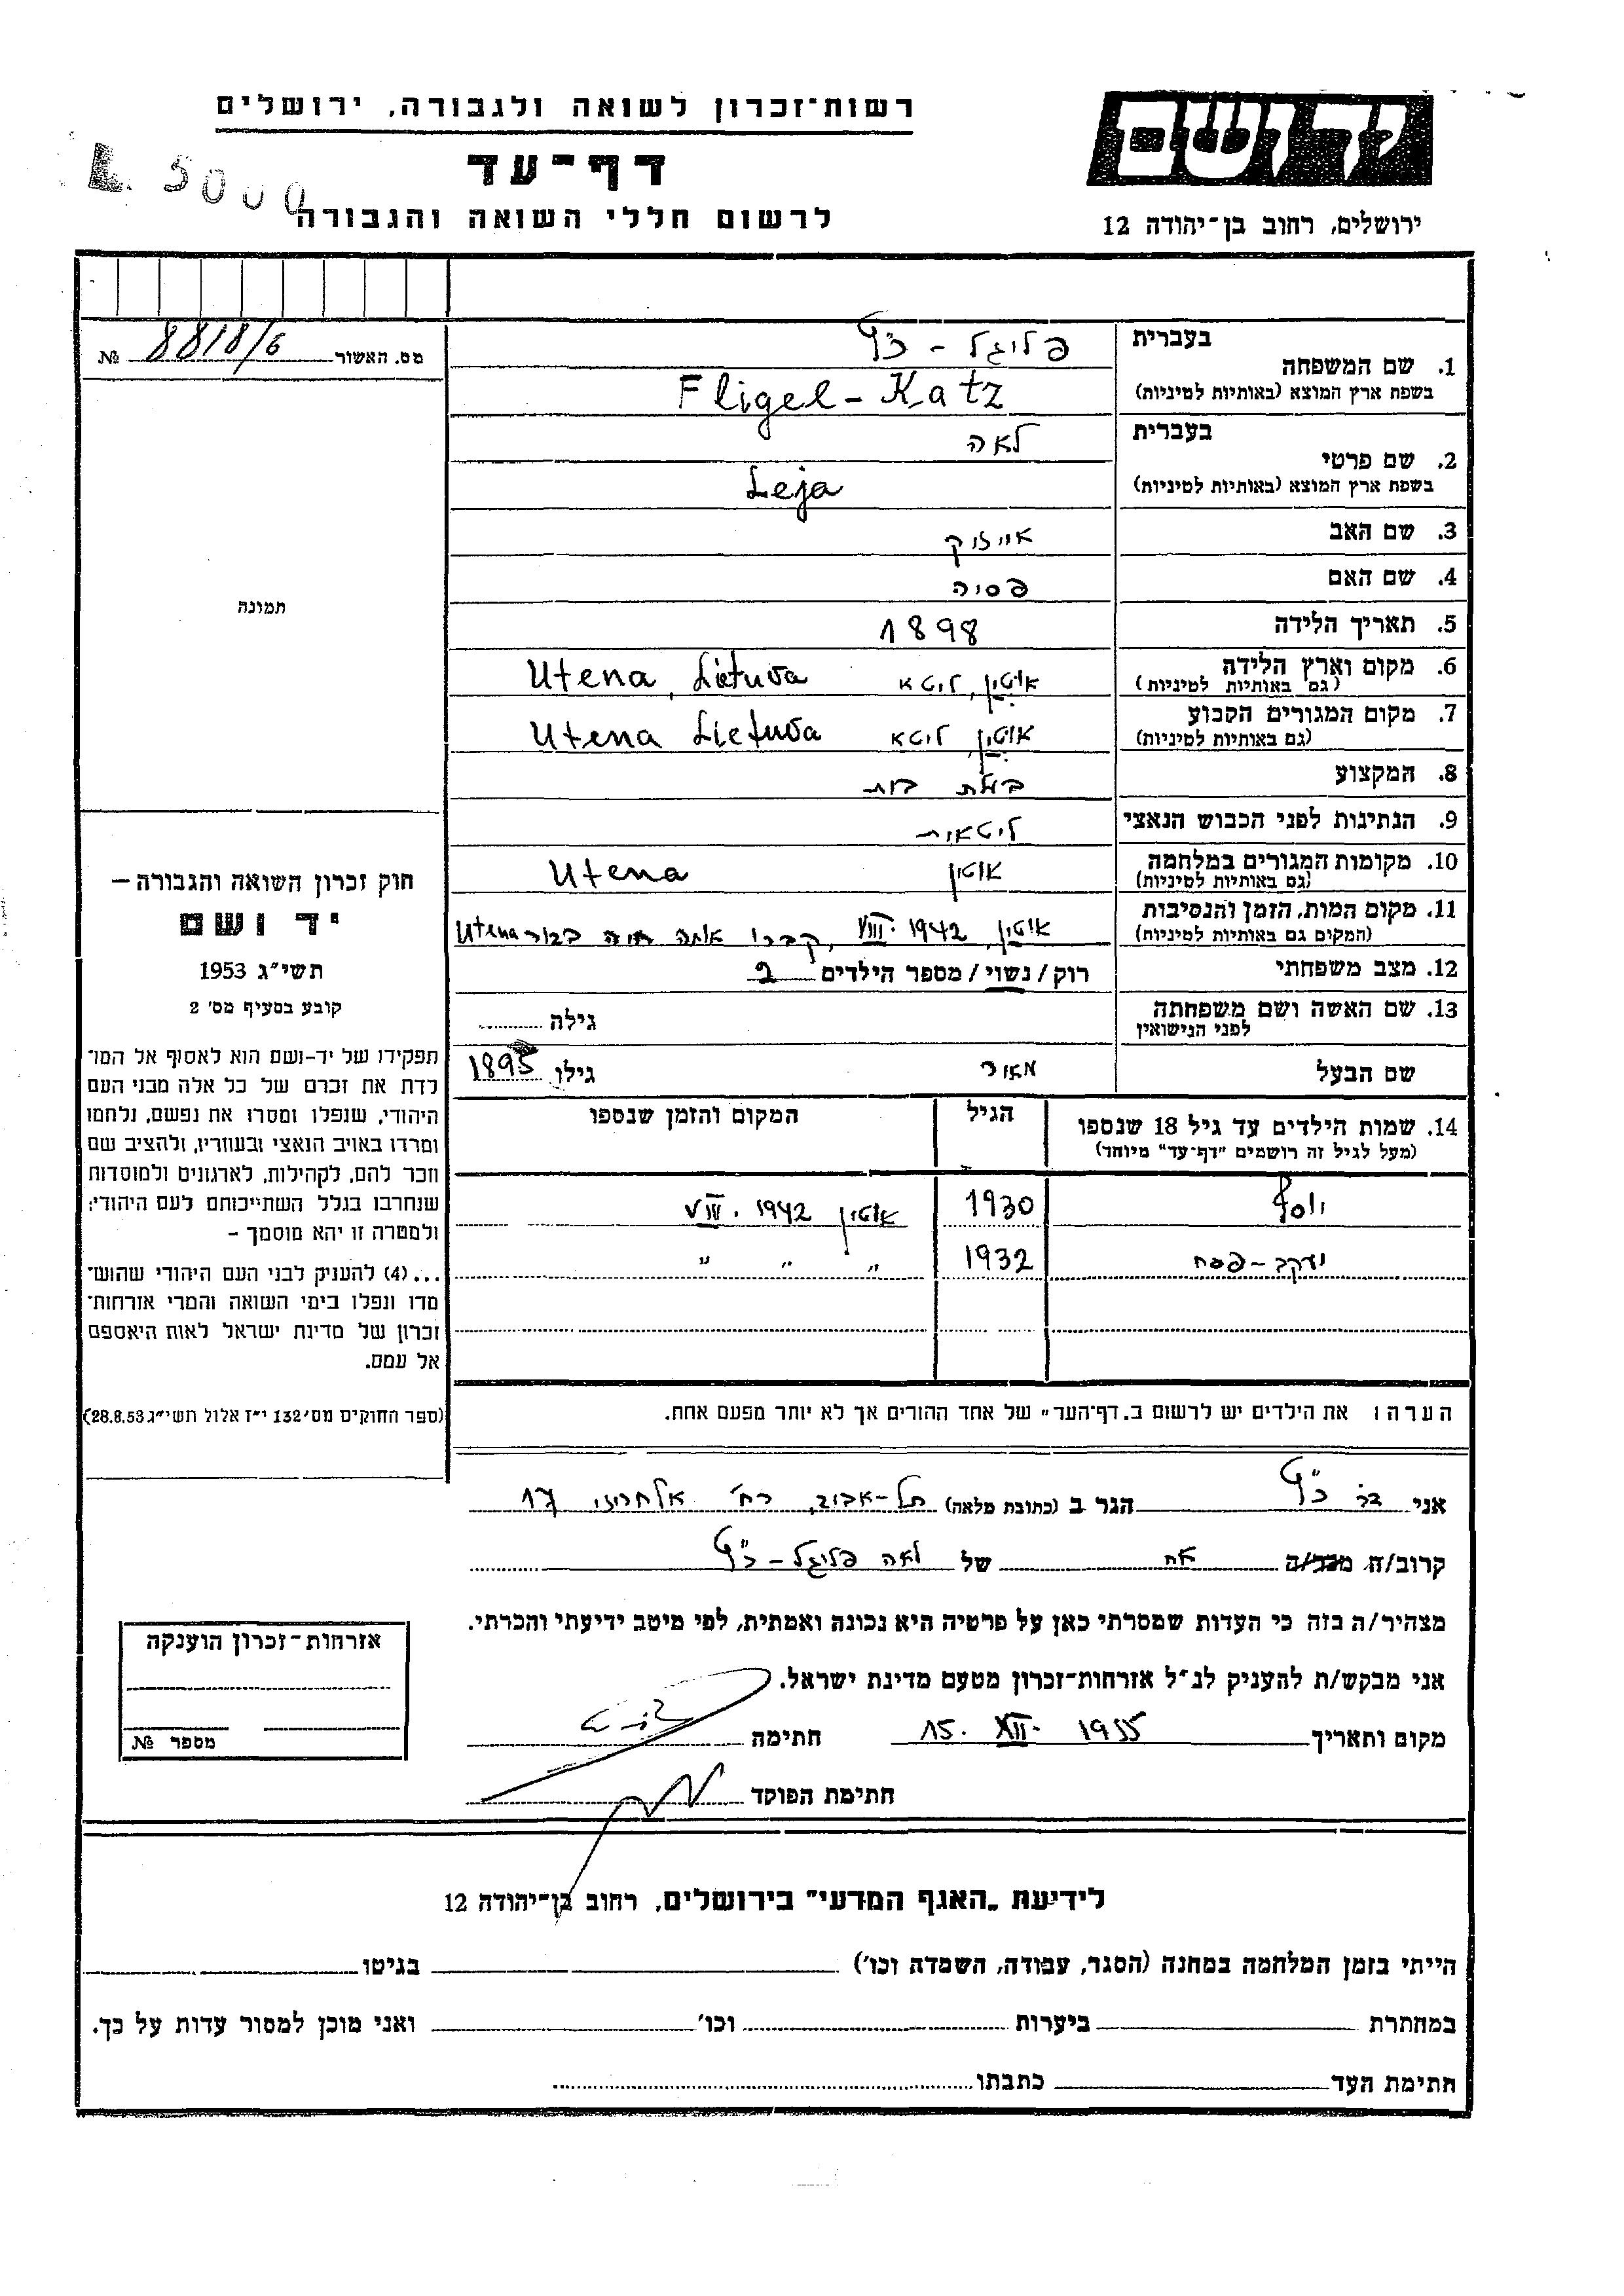 רשות־זכרון לשואה ולגבורה, ירושלים
דף־עד
לרשום חללי השואה והגבורה
L. 5000
ידושם
ירושלים, רחוב בן־יהודה 12
מס. האשור 8818/6 №
תמונה
1. שם המשפחה בעברית פליגל - כ"ץ
בשפת ארץ המוצא (באותיות לטיניות) Fligel - Katz
2. שם פרטי בעברית לאה
בשפת ארץ המוצא (באותיות לטיניות) Leja
3. שם האב אייזיק
4. שם האם פסיה
5. תאריך הלידה 1898
6. מקום וארץ הלידה (גם באותיות לטיניות) אוטין, ליטא Utena, Lietuva
7. מקום המגורים הקבוע (גם באותיות לטיניות) אוטין, ליטא Utena Lietuva
8. המקצוע בעלת בית
9. הנתינות לפני הכבוש הנאצי ליטאית
10. מקומות המגורים במלחמה (גם באותיות לטיניות) אוטין Utena
11. מקום המות, הזמן והנסיבות (המקום גם באותיות לטיניות) אוטין, VIII. 1942, קברו אותה חיה בבור Utena
12. מצב משפחתי רוק/נשוי/מספר הילדים 2
13. שם האשה ושם משפחתה לפני הנישואין גילה
שם הבעל מאיר גילו 1895
14. שמות הילדים עד גיל 18 שנספו הגיל המקום והזמן שנספו
(מעל לגיל זה רושמים "דף־עד" מיוחד)
יוסף 1930 אוטין VIII. 1942
יעקב-פסח 1932 " " "
הערה: את הילדים יש לרשום ב„דף־העד" של אחד ההורים אך לא יותר מפעם אחת.
חוק זכרון השואה והגבורה —
יד ושם
תשי"ג 1953
קובע בסעיף מס' 2
תפקידו של יד-ושם הוא לאסוף אל המו־
לדת את זכרם של כל אלה מבני העם
היהודי, שנפלו ומסרו את נפשם, נלחמו
ומרדו באויב הנאצי ובעוזריו, ולהציב שם
וזכר להם, לקהילות, לארגונים ולמוסדות
שנחרבו בגלל השתייכותם לעם היהודי;
ולמטרה זו יהא מוסמך –
...(4) להעניק לבני העם היהודי שהוש־
מדו ונפלו בימי השואה והמרי אזרחות־
זכרון של מדינת ישראל לאות היאספם
אל עמם.
(ספר החוקים מס' 132 י"ז אלול תשי"ג 28.8.53)
אני כ"ץ הגר ב (כתובת מלאה) תל-אביב, רח' אלחריזי 17
קרוב/ה מכר/ה אח של לאה פליגל - כ"ץ
מצהיר/ה בזה כי העדות שמסרתי כאן על פרטיה היא נכונה ואמתית, לפי מיטב ידיעתי והכרתי.
אני מבקש/ת להעניק לנ"ל אזרחות־זכרון מטעם מדינת ישראל.
מקום ותאריך 15. XII. 1955 חתימה
חתימת הפוקד
אזרחות־זכרון הוענקה
מספר №
לידיעת „האגף המדעי" בירושלים, רחוב בן־יהודה 12
הייתי בזמן המלחמה במחנה (הסגר, עבודה, השמדה וכו') בגיטו
במחתרת ביערות וכו' ואני מוכן למסור עדות על כך.
חתימת העד כתבתו